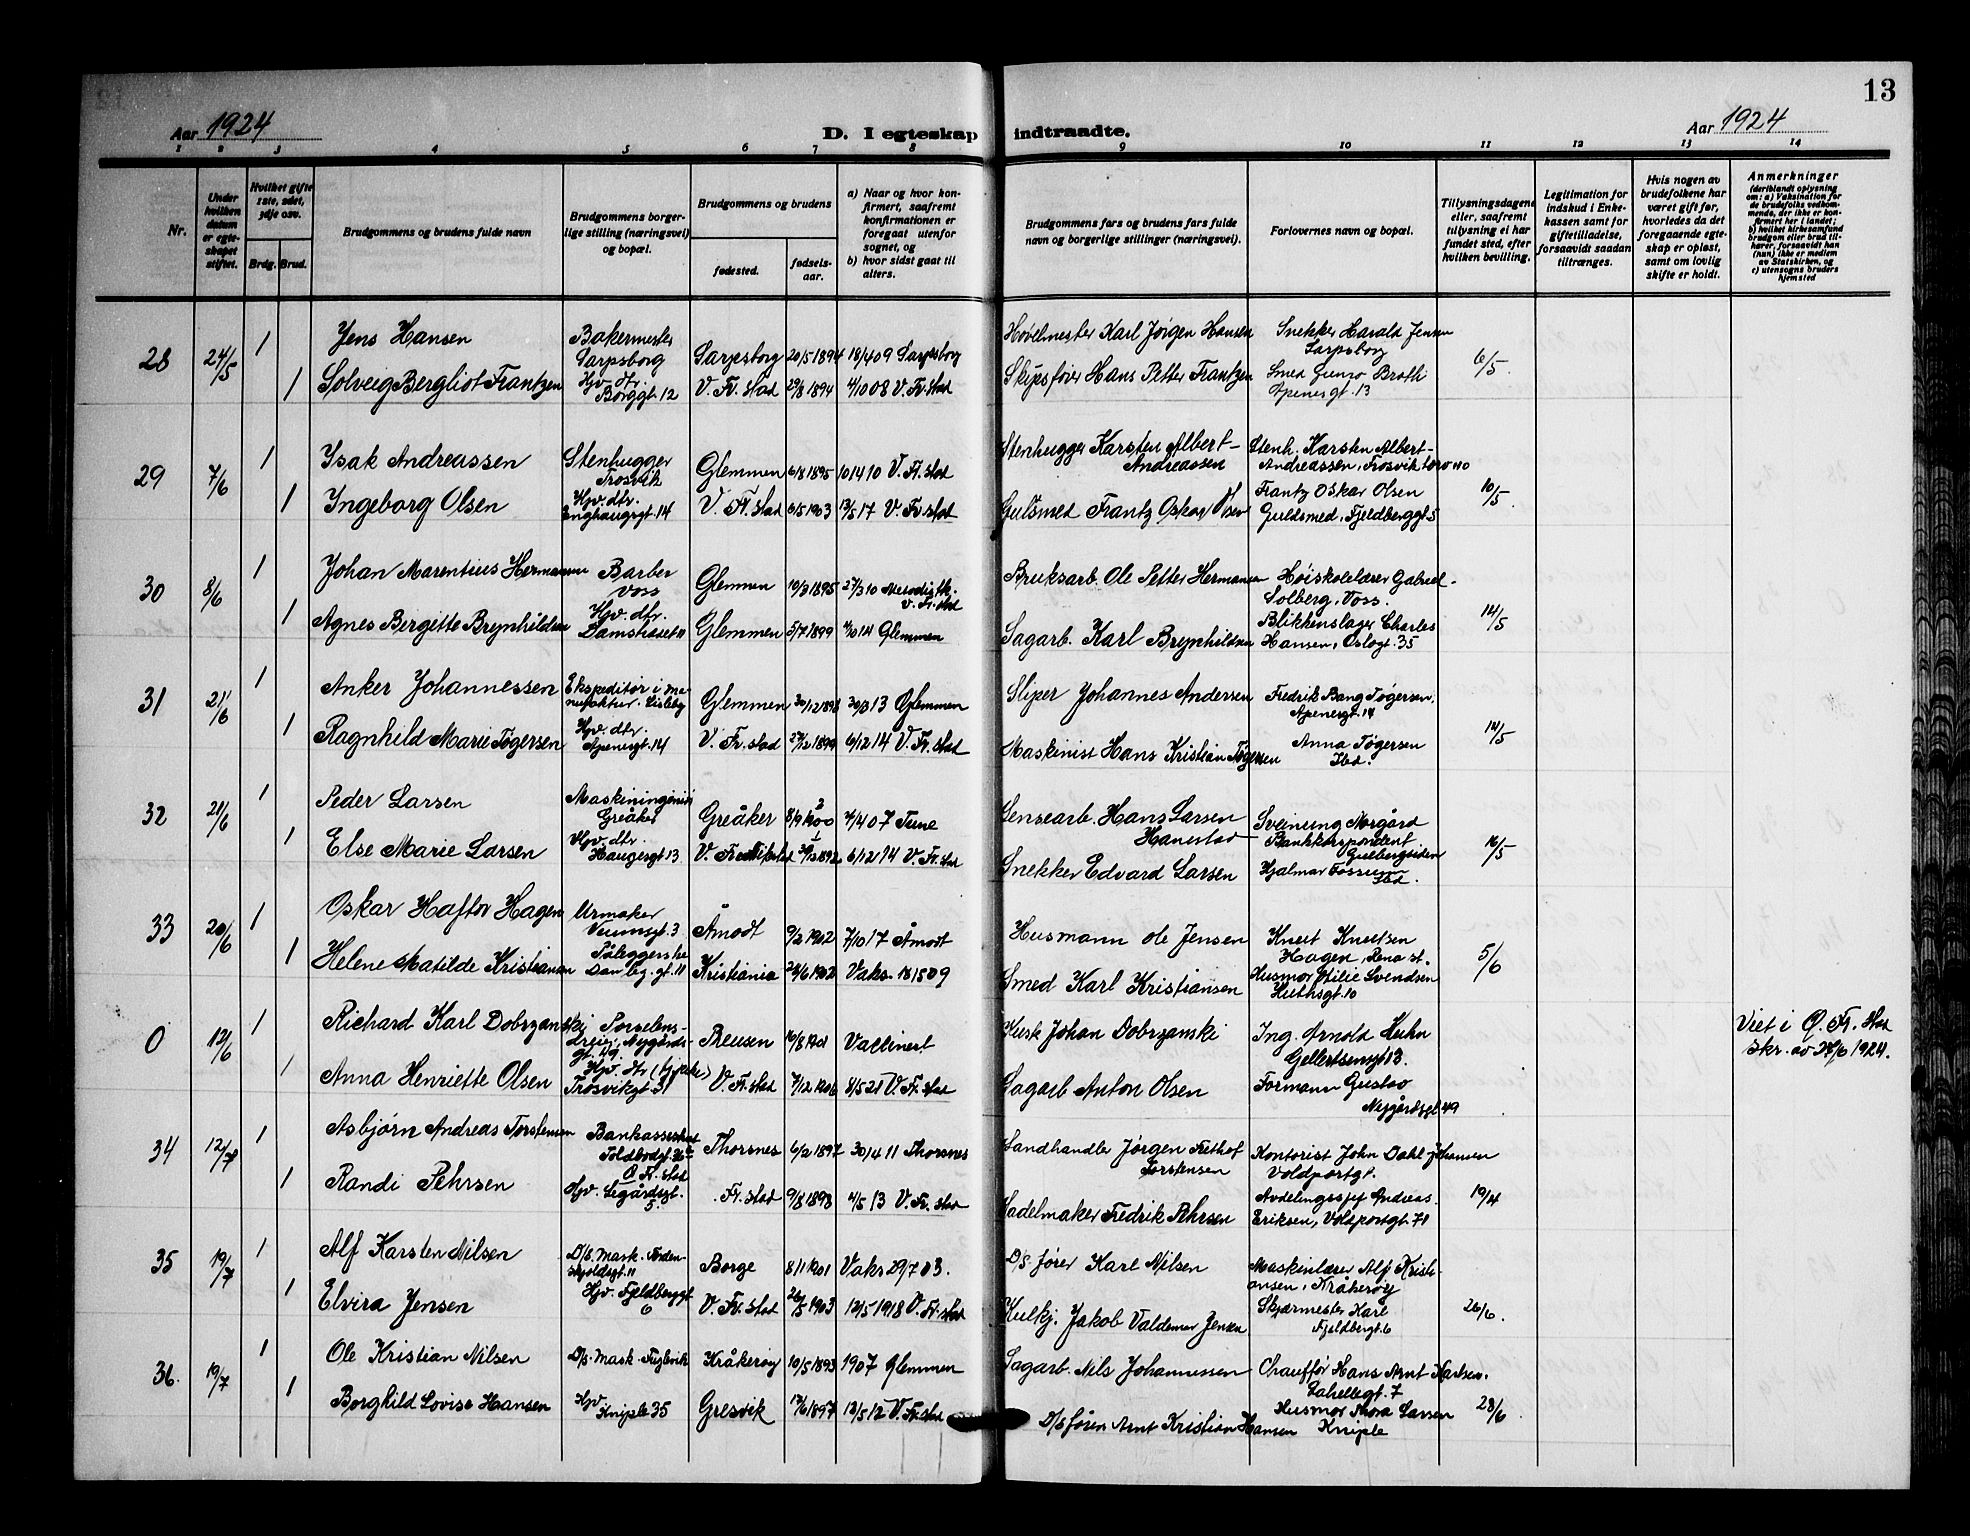 13
Aar 1924
D. I egteskap indtraadte.
Aar 1924
1 2 3 4 5 6 7 8 9 10 11 12 13 14
Nr.
Under hvilken datum er egteskapet stiftet.
Hvilket gifte 1ste, 2det, 3dje osv.
Brdg. Brud.
Brudgommens og brudens fulde navn
Brudgommens borgerlige stilling (næringsvei) og bopæl.
Brudgommens og brudens
fødested.
fødselsaar.
a) Naar og hvor konfirmert, saafremt konfirmationen er foregaat utenfor sognet, og
b) hvor sidst gaat til alters.
Brudgommens fars og brudens fars fulde navn og borgerlige stillinger (næringsvei).
Forlovernes navn og bopæl.
Tillysningsdagene eller, saafremt tillysning ei har fundet sted, efter hvilken bevilling.
Legitimation for indskud i Enkekassen samt for giftetilladelse, forsaavidt saadan tiltrænges.
Hvis nogen av brudefolkene har været gift før, hvorledes da det foregaaende egteskap er opløst, samt om lovlig skifte er holdt.
Anmerkninger (deriblandt oplysning om: a) Vaksination for de brudefolks vedkommende, der ikke er konfirmert her i landet; b) hvilket kirkesamfund brudgom eller brud tilhører, forsaavidt han (hun) ikke er medlem av Statskirken, og c) utensogns bruders hjemsted
28 24/5 1 Jens Hansen Bakermester Sarpsborg Sarpsborg 20/5 1894 18/4 09 Sarpsborg Høvelmester Karl Jørgen Hansen Snekker Harald Jensen Sarpsborg 6/5.
1 Solveig Bergliot Frantzen Hjv. dtr. Borggt. 12 V. Fr. stad 29/8 1894 4/10 08 V. Fr. stad Skipsfører Hans Petter Frantzen Smed Gunro Apenesgt. 13
29 7/6 1 Isak Andreassen Stenhugger Trosvik Glemmen 6/8 1895 10 14 10 V. Fr. stad Stenhugger Karsten Albert Andreassen Stenh. Karsten Albert Andreassen, Trosvik 10/5
1 Ingeborg Olsen Hjv. dtr. Enghaugsgt. 14 V. Fr. stad 6/5 1903 13/5 17 V. Fr. stad Gulsmed Frantz Oskar Olsen Frantz Oskar Olsen Guldsmed, Fjeldberggt 5
30 8/6 1 Johan Marentius Hermansen Barber Voss Glemmen 10/3 1895 27/3 10 Metodistk. V. Fr. stad Bruksarb. Ole Petter Hermansen Høiskolelærer Gabriel Solberg, Voss. 14/5
1 Agnes Bergitte Brynhildsen Hjv. dtr. Glemmen 5/7 1899 4/10 14 Glemmen Sagarb. Karl Brynhildsen Blikkenslager Charles Hansen, Oslogt. 35
31 21/6 1 Anker Johannessen Ekspeditør i manufaktur. Lisleby Glemmen 30/12 1896 30/3 13 Glemmen Sliper Johannes Andersen Fredrik Bang Tøgersen, Apenesgt. 14 14/5
1 Ragnhild Marie Tøgersen Hjv. dtr. Apenesgt. 14 V. Fr. stad 27/12 1899 6/12 14 V. Fr. stad Maskinist Hans Kristian Tøgersen Anna Tøgersen Ibd.
32 21/6 1 Peder Larsen Maskiningeniør Greåker Greåker 8/9 4/4 07 Tune Hans Larsen Hanestad Sveinung Norgård Bankkorspondent Gulbergsiden 16/5
1 Else Marie Larsen Hjv. dtr. Haugesgt 13 V. Fredrikstad 1892 6/12 14 V. Fr. stad Snekker Edvard Larsen Hjalmar Fossum Ibd.
33 20/6 1 Oskar Haftor Hagen Urmaker Veumsgt. 3 Åmodt 9/2 1902 7/10 17 Åmodt Husmann Ole Jensen Knut Knutsen Hagen, Rena st. 5/6
1 Helene Matilde Kristiansen Påleggerske Kristiania 23/6 1902 Vaks. 18 15 09 Smed Karl Kristiansen Husmor Otilie Svendsen Huthsgt. 10
0 12/6 1 Richard Karl Dobrzanski Porselensdreier, Nygårdsgt. 49 16/8 1901 Vallinert Kusk Johan Dobrzanski Ing. Arnold Huhn Gellertsengt 13. Viet i Ø. Fr. stad Skr. av 27/6 1924.
1 Anna Henriette Olsen Hjv. dtr Trosvikgt 31 V. Fr. stad 7/12 1906 8/5 21 V. Fr. stad Sagarb Anton Olsen Formann Gustav Nygårdsgt 49
34 12/7 1 Asbjørn Andreas Torstensen Ø. Fr. stad Thorsnes 6/2 1897 30/4 11 Thorsnes Landhandler Jørgen Frithof Torstensen Kontorist John Dahl Johansen Voldportgt. 19/4
1 Randi Pehrsen Hjv. Legårdsgt. 5. Fr. stad 9/8 1898 4/5 13 V. Fr. stad Sadelmaker Fredrik Pehrsen Avdelingssjef Andreas Eriksen, Voldportgt. 71
35 19/7 1 Alf Karsten Nilsen D/S. Mask. Tordenskjoldsgt. 11 Borge 8/11 1901 Vaks 29/7 03. D/S. fører Karl Nilsen Maskinlærer Alf Kristiansen, Kråkerøy 26/6.
1 Elvira Jensen Hjv. Fjeldberggt 6 V. Fr. stad 26/5 1903 12/5 1918 V. Fr. stad Kulkj. Jakob Valdemar Jensen Skjærmester Karl Fjeldbergt. 6
36. 19/7 1 Ole Kristian Nilsen D/S. Mask. Fuglevik Kråkerøy 10/5 1893 1907 Glemmen Sagarb. Nils Johannessen Chauffør Hans Arnt Karlsen. 7 28/6
1 Borghild Lovise Hansen Hjv. Kniple 35 Gresvik 17/6 1897 12/5 12 V. Fr. stad D/S føren Arnt Kristian Hansen Husmor Thora Larsen Kniple